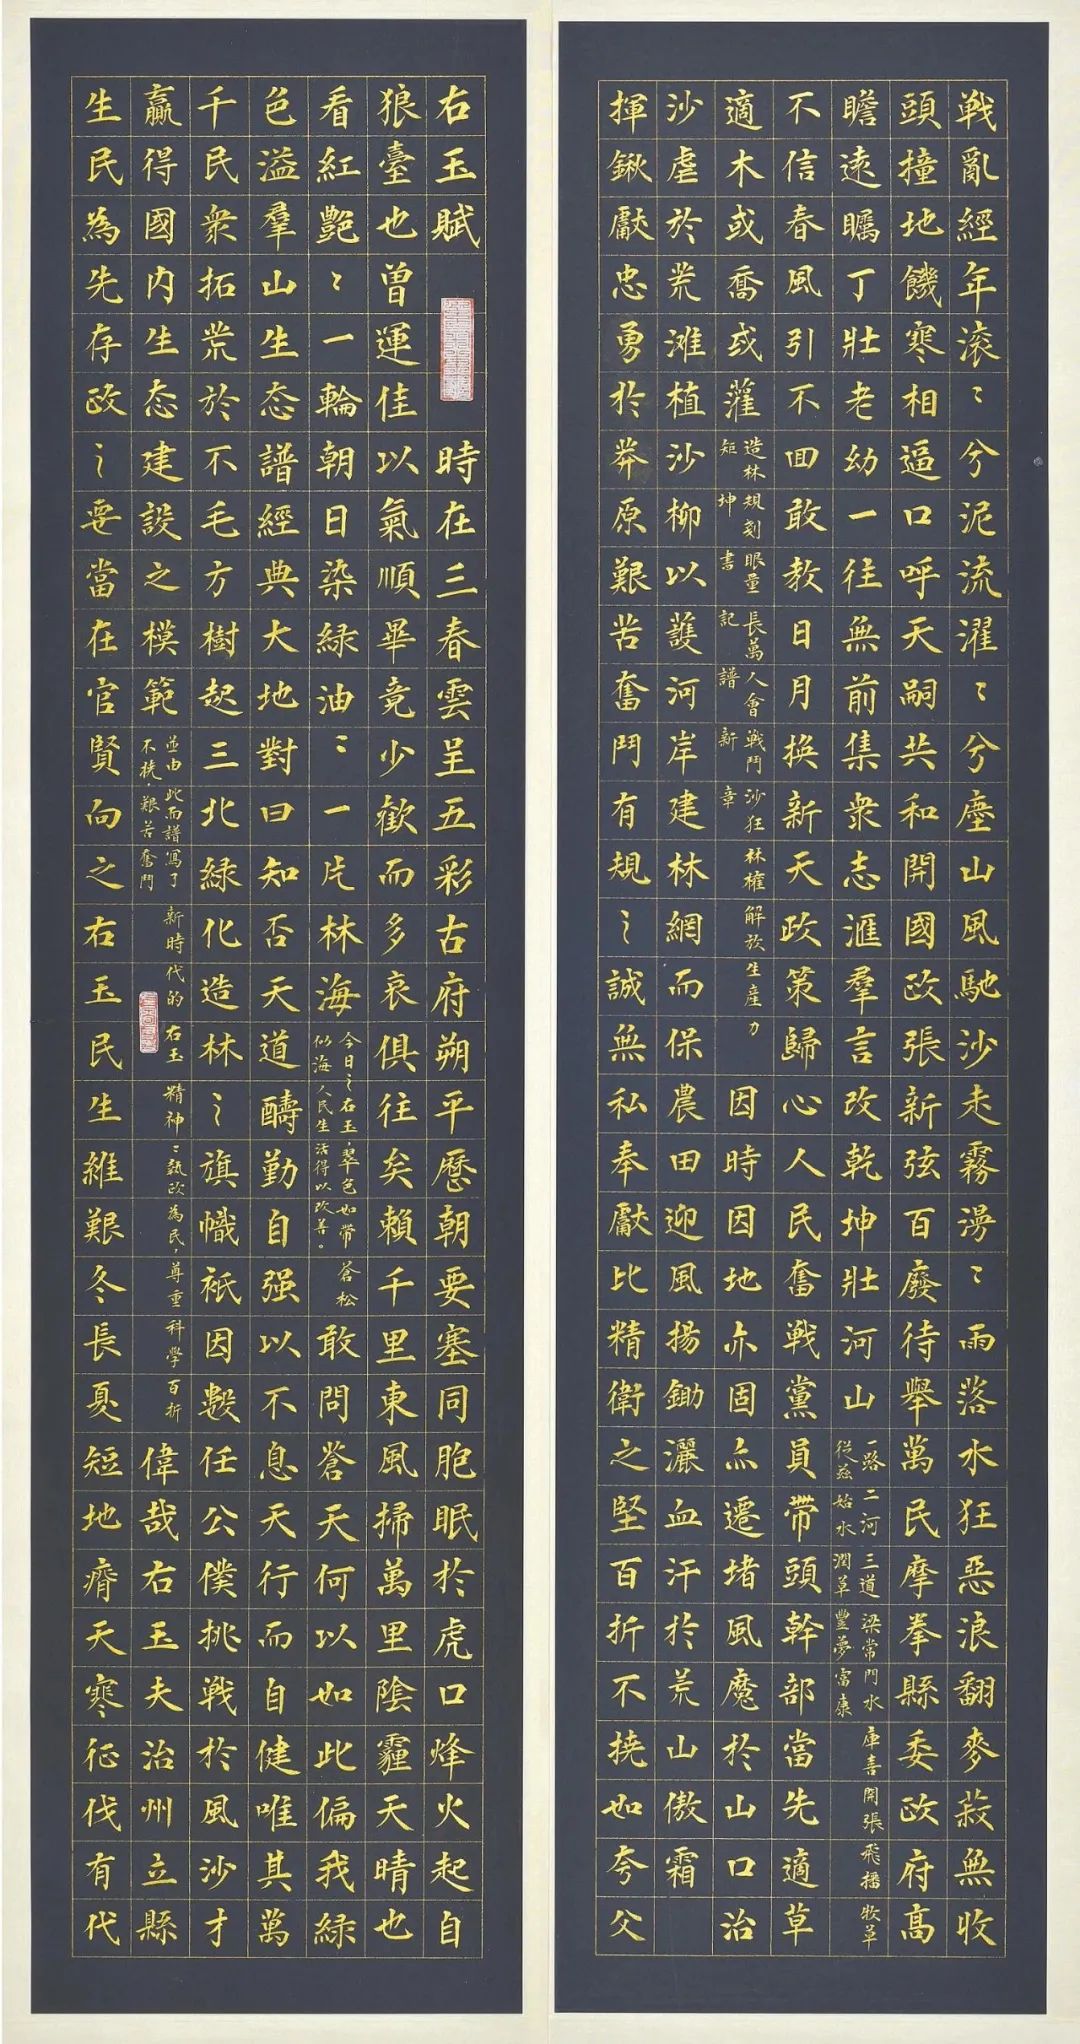 右玉賦 時在三春雲呈五彩古府朔平歷朝要塞同胞眠於虎口烽火起自
狼臺也曾運佳以氣順畢竟少歡而多哀俱往矣賴千里東風掃萬里陰霾天晴也
看紅艷〻一輪朝日染綠油〻一片林海
今日之右玉，翠色如帶蒼松
似海人民生活得以改善。
敢問蒼天何以如此偏我綠
色溢羣山生态譜經典大地對曰知否天道酬勤自强以不息天行而自健唯其萬
千民衆拓荒於不毛方樹起三北綠化造林之旗幟祇因數任公僕挑戰於風沙才
贏得國内生态建設之模範
並由此而譜寫了新時代的右玉精神〻執政為民，尊重科學百折
不撓，艱苦奮鬥
偉哉右玉夫治州立縣
生民為先存政之要當在官賢向之右玉民生維艱冬長夏短地瘠天寒征伐有代
戰亂經年滚〻兮泥流濯〻兮塵山風馳沙走霧漫〻雨落水狂惡浪翻麥菽無收
頭撞地饑寒相逼口呼天嗣共和開國政張新弦百廢待舉萬民摩拳縣委政府高
瞻遠矚丁壯老幼一往無前集衆志滙羣言改乾坤壯河山
一路二河三道梁常門水庫喜開張飛播牧草
從茲始水潤草豐夢富康
不信春風引不回敢教日月換新天政策歸心人民奮戰黨員帶頭幹部當先適草
適木或喬或灌
造林規刻眼量長萬人會戰鬥沙狂林權解放生產力
矩坤書記譜新章
因時因地亦固亦遷堵風魔於山口治
沙虐於荒滩植沙柳以護河岸建林網而保農田迎風揚鋤灑血汗於荒山傲霜
揮鍬獻忠勇於莽原艱苦奮鬥有規之誠無私奉獻比精衛之堅百折不撓如夸父